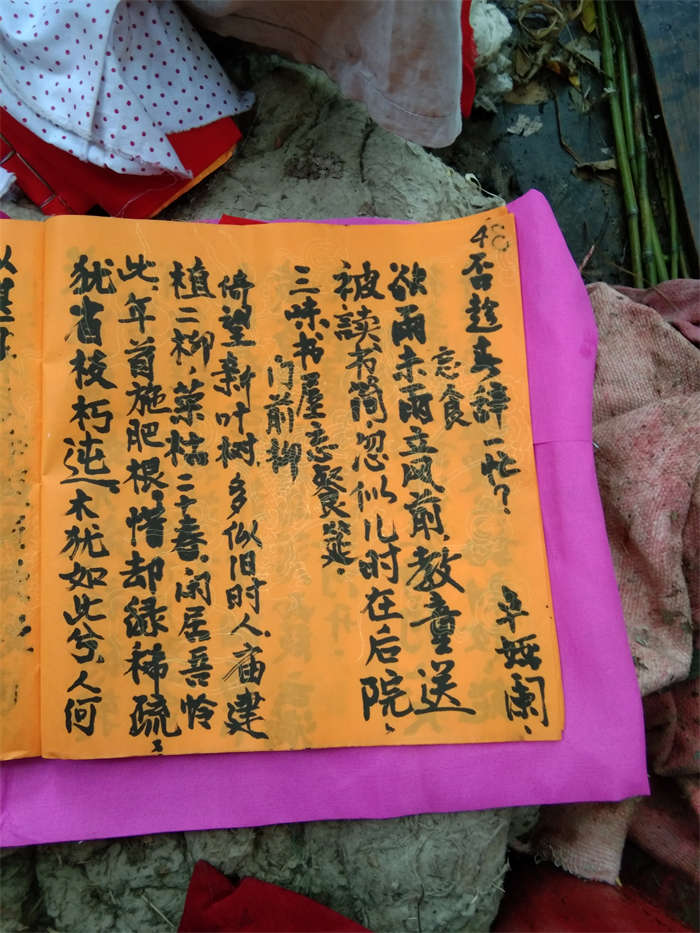 48
否趁春辞一忙？
卓娅阑.
忘食
欲雨未雨立风前，教童送
被读书简，忽似儿时在后院，
三味书屋忘餐筵.
门前柳
倚望新叶树，多似旧时人，庙建
植二柳，菜枯二十春，闲居吾怜
此，年首施肥根，惜却绿稀疏，
犹省枝朽迍，木犹如此兮，人何